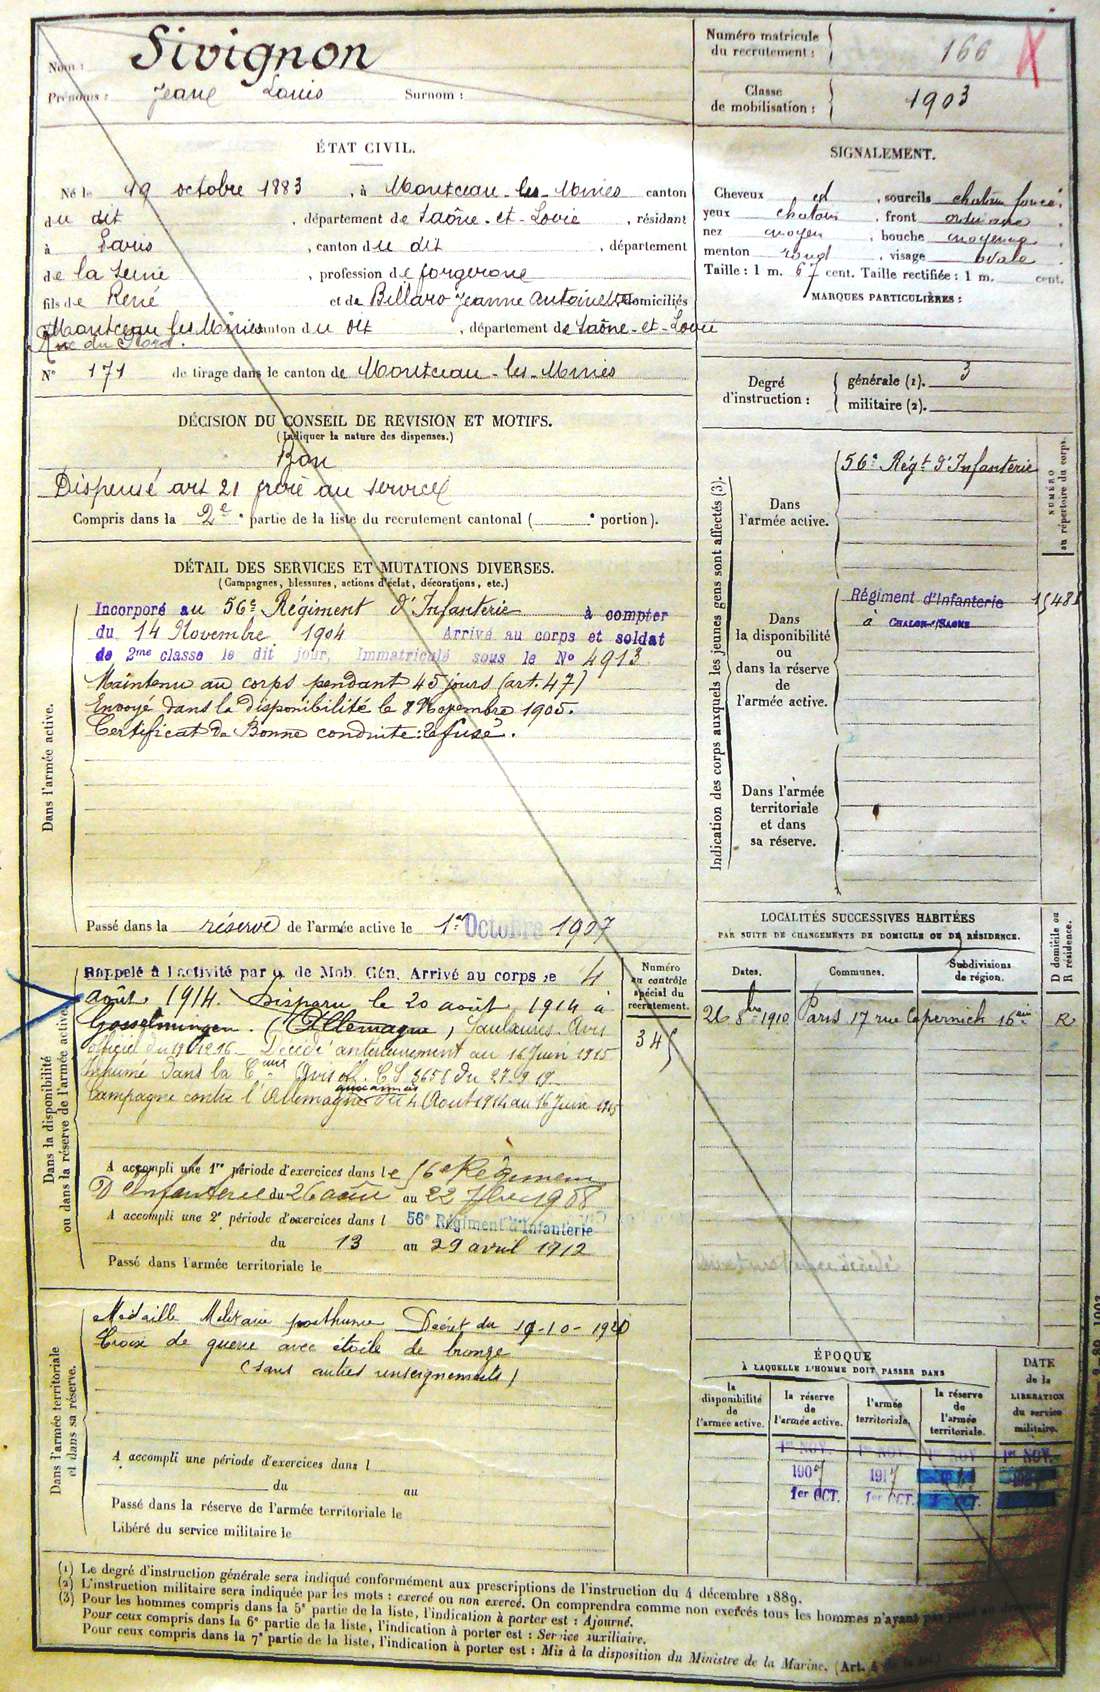 Nom : Sivignon
Prénoms : Jean Louis Surnom :
Numéro matricule du recrutement : 166
Classe de mobilisation : 1903
ÉTAT CIVIL.
Né le 19 octobre 1883, à Montceau-les-Mines canton
du dit, département de Saône-et-Loire, résidant
à Paris, canton du dit, département
de la Seine, profession de forgeron
fils de René et de Billard Jeanne Antoinette domiciliés
à Montceau les Mines canton du dit, département de Saône-et-Loire
Rue du Nord.
N° 171 de tirage dans le canton de Montceau-les-Mines
SIGNALEMENT.
Cheveux et, sourcils chatain foncé,
yeux chatain, front ordinaire
nez moyen, bouche moyenne,
menton rond, visage ovale.
Taille : 1 m. 67 cent. Taille rectifiée : 1 m. cent.
MARQUES PARTICULIÈRES :
Degré d'instruction :
générale (1). 3
militaire (2).
DÉCISION DU CONSEIL DE REVISION ET MOTIFS.
(Indiquer la nature des dispenses.)
Bon
Dispensé art 21 frère au service
Compris dans la 2e partie de la liste du recrutement cantonal ( portion).
DÉTAIL DES SERVICES ET MUTATIONS DIVERSES.
(Campagnes, blessures, actions d'éclat, décorations, etc.)
Dans l'armée active.
Incorporé au 56e Régiment d'Infanterie à compter
du 14 Novembre 1904 Arrivé au corps et soldat
de 2me classe le dit jour, Immatriculé sous le No 4913
Maintenu au corps pendant 45 jours (art. 47)
Envoyé dans la disponibilité le 8 Novembre 1905.
Certificat de Bonne conduite : Refusé.
Passé dans la réserve de l'armée active le 1er Octobre 1907
Indication des corps auxquels les jeunes gens sont affectés (3).
Dans l'armée active.
56e Régt d'Infanterie
NUMÉRO au répertoire du corps.
Dans la disponibilité ou dans la réserve de l'armée active.
Régiment d'Infanterie
à CHALON-S/SAONE
Dans l'armée territoriale et dans sa réserve.
Dans la disponibilité ou dans la réserve de l'armée active.
Rappelé à l'activité par o. de Mob. Gén. Arrivé au corps le 4
Août 1914. Disparu le 20 août 1914 à
Gosselmingen. (Allemagne)
Décédé antérieurement au 16 Juin 1915
Inhumé dans la
Campagne contre l'Allemagne du 4 Août 1914 au 16 Juin 1915
Numéro au contrôle spécial du recrutement.
345
A accompli une 1re période d'exercices dans le 56e Régiment
D'Infanterie du 26 août au 22 7bre 1908
A accompli une 2e période d'exercices dans l 56e Régiment d'Infanterie
du 13 au 29 avril 1912
Passé dans l'armée territoriale le
LOCALITÉS SUCCESSIVES HABITÉES
PAR SUITE DE CHANGEMENTS DE DOMICILE OU DE RÉSIDENCE.
Dates. Communes. Subdivisions de région. D domicile ou R résidence.
26 8bre 1910 Paris 17 rue Copernich 16e R
Dans l'armée territoriale et dans sa réserve.
Médaille Militaire posthume Décret du 19-10-1920
Croix de guerre avec étoile de bronze
(sans autres renseignements)
A accompli une période d'exercices dans l
du au
Passé dans la réserve de l'armée territoriale le
Libéré du service militaire le
ÉPOQUE
À LAQUELLE L'HOMME DOIT PASSER DANS
la disponibilité de l'armée active.
la réserve de l'armée active.
l'armée territoriale.
la réserve de l'armée territoriale.
DATE de la LIBÉRATION du service militaire.
1er NOV. 1er NOV. 1er NOV. 1er NOV.
1907 1917
1er OCT. 1er OCT.
(1) Le degré d'instruction générale sera indiqué conformément aux prescriptions de l'instruction du 4 décembre 1889.
(2) L'instruction militaire sera indiquée par les mots : exercé ou non exercé. On comprendra comme non exercés tous les hommes n'ayant pas
(3) Pour les hommes compris dans la 5e partie de la liste, l'indication à porter est : Ajourné.
Pour ceux compris dans la 6e partie de la liste, l'indication à porter est : Service auxiliaire.
Pour ceux compris dans la 7e partie de la liste, l'indication à porter est : Mis à la disposition du Ministre de la Marine. (Art. 4